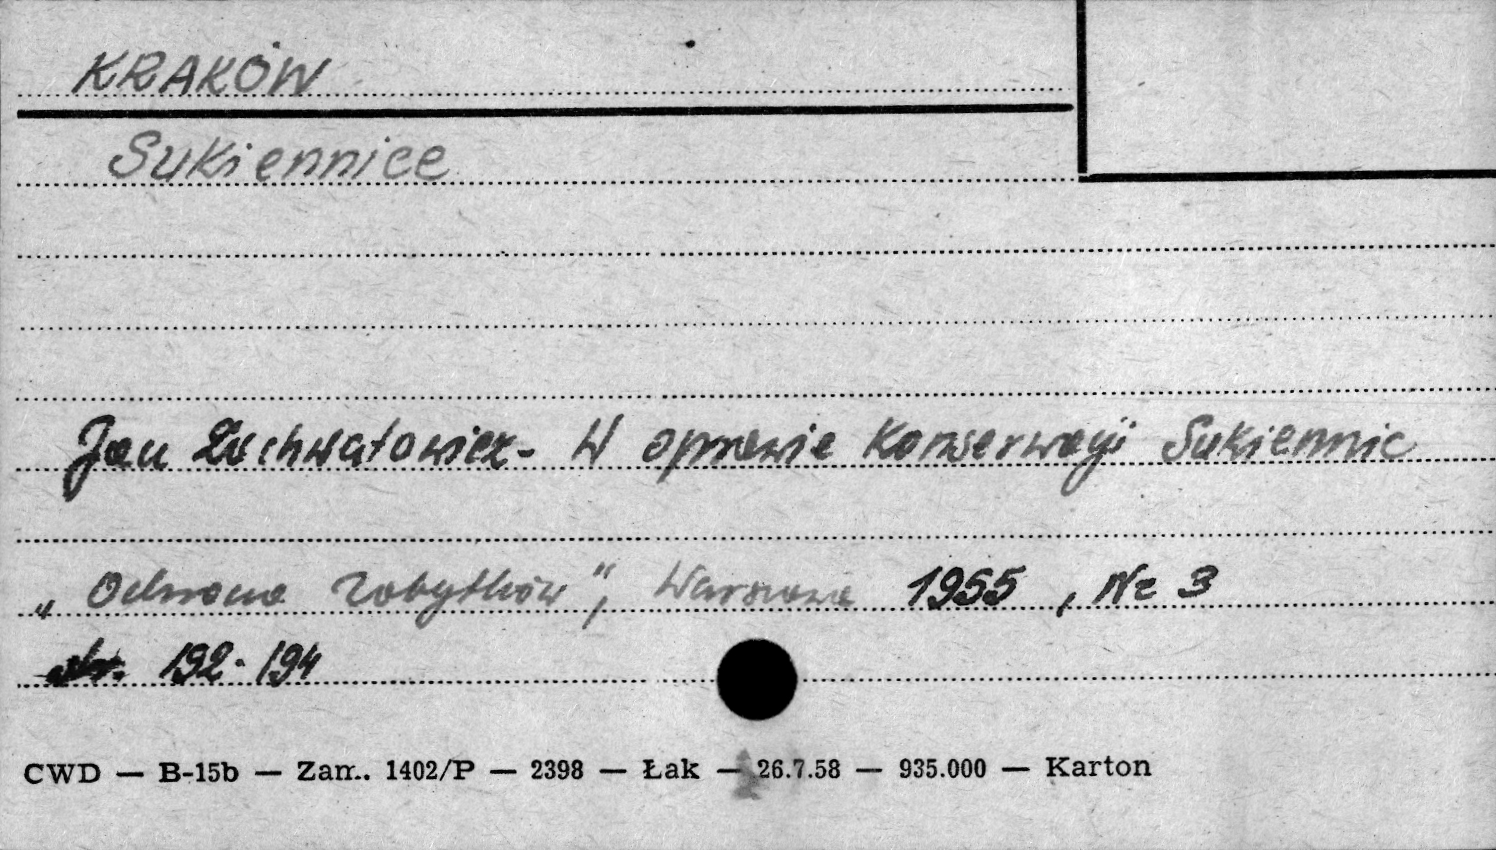 KRAKÓW
Sukiennice
Jan Zachwatowicz - W sprawie Konserwacji Sukiennic
„Ochrona Zabytków", Warszawa 1955, Nr 3
str. 192-194
CWD — B-15b — Zam. 1402/P — 2398 — Łak — 26.7.58 — 935.000 — Karton